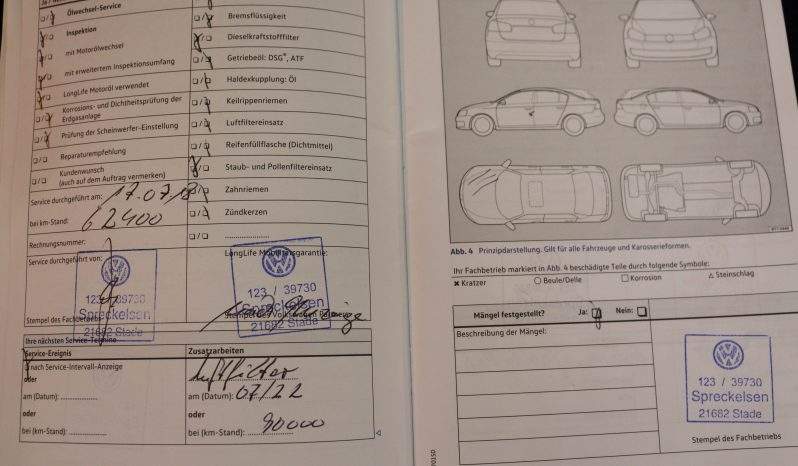 ❏/❏ Ölwechsel-Service
❏/❏ Inspektion
mit Motorölwechsel
mit erweitertem Inspektionsumfang
LongLife Motoröl verwendet
Korrosions- und Dichtheitsprüfung der
Erdgasanlage
Prüfung der Scheinwerfer-Einstellung
❏/❏ Reparaturempfehlung
❏/❏ Kundenwunsch
(auch auf dem Auftrag vermerken)
Service durchgeführt am: 17.07.18
bei km-Stand: 62400
Rechnungsnummer:
Service durchgeführt von:
123 / 39730
Spreckelsen
21682 Stade
Stempel des Fachbetriebs
Bremsflüssigkeit
Dieselkraftstofffilter
Getriebeöl: DSG®, ATF
Haldexkupplung: Öl
Keilrippenriemen
Luftfiltereinsatz
Reifenfüllflasche (Dichtmittel)
Staub- und Pollenfiltereinsatz
Zahnriemen
Zündkerzen
❏/❏ ....................
LongLife Mobilitätsgarantie:
123 / 39730
Spreckelsen
21682 Stade
Stempel des Volkswagen
Ihre nächsten Service-Termine
Service-Ereignis
nach Service-Intervall-Anzeige
oder
am (Datum): ...............
oder
bei (km-Stand): ...............
Zusatzarbeiten
Luftfilter
am (Datum): 07/22
oder
bei (km-Stand): 90000
Abb. 4 Prinzipdarstellung. Gilt für alle Fahrzeuge und Karosserieformen.
Ihr Fachbetrieb markiert in Abb. 4 beschädigte Teile durch folgende Symbole:
✖ Kratzer ○ Beule/Delle □ Korrosion △ Steinschlag
Mängel festgestellt? Ja: ❏ Nein: ❏
Beschreibung der Mängel:
123 / 39730
Spreckelsen
21682 Stade
Stempel des Fachbetriebs